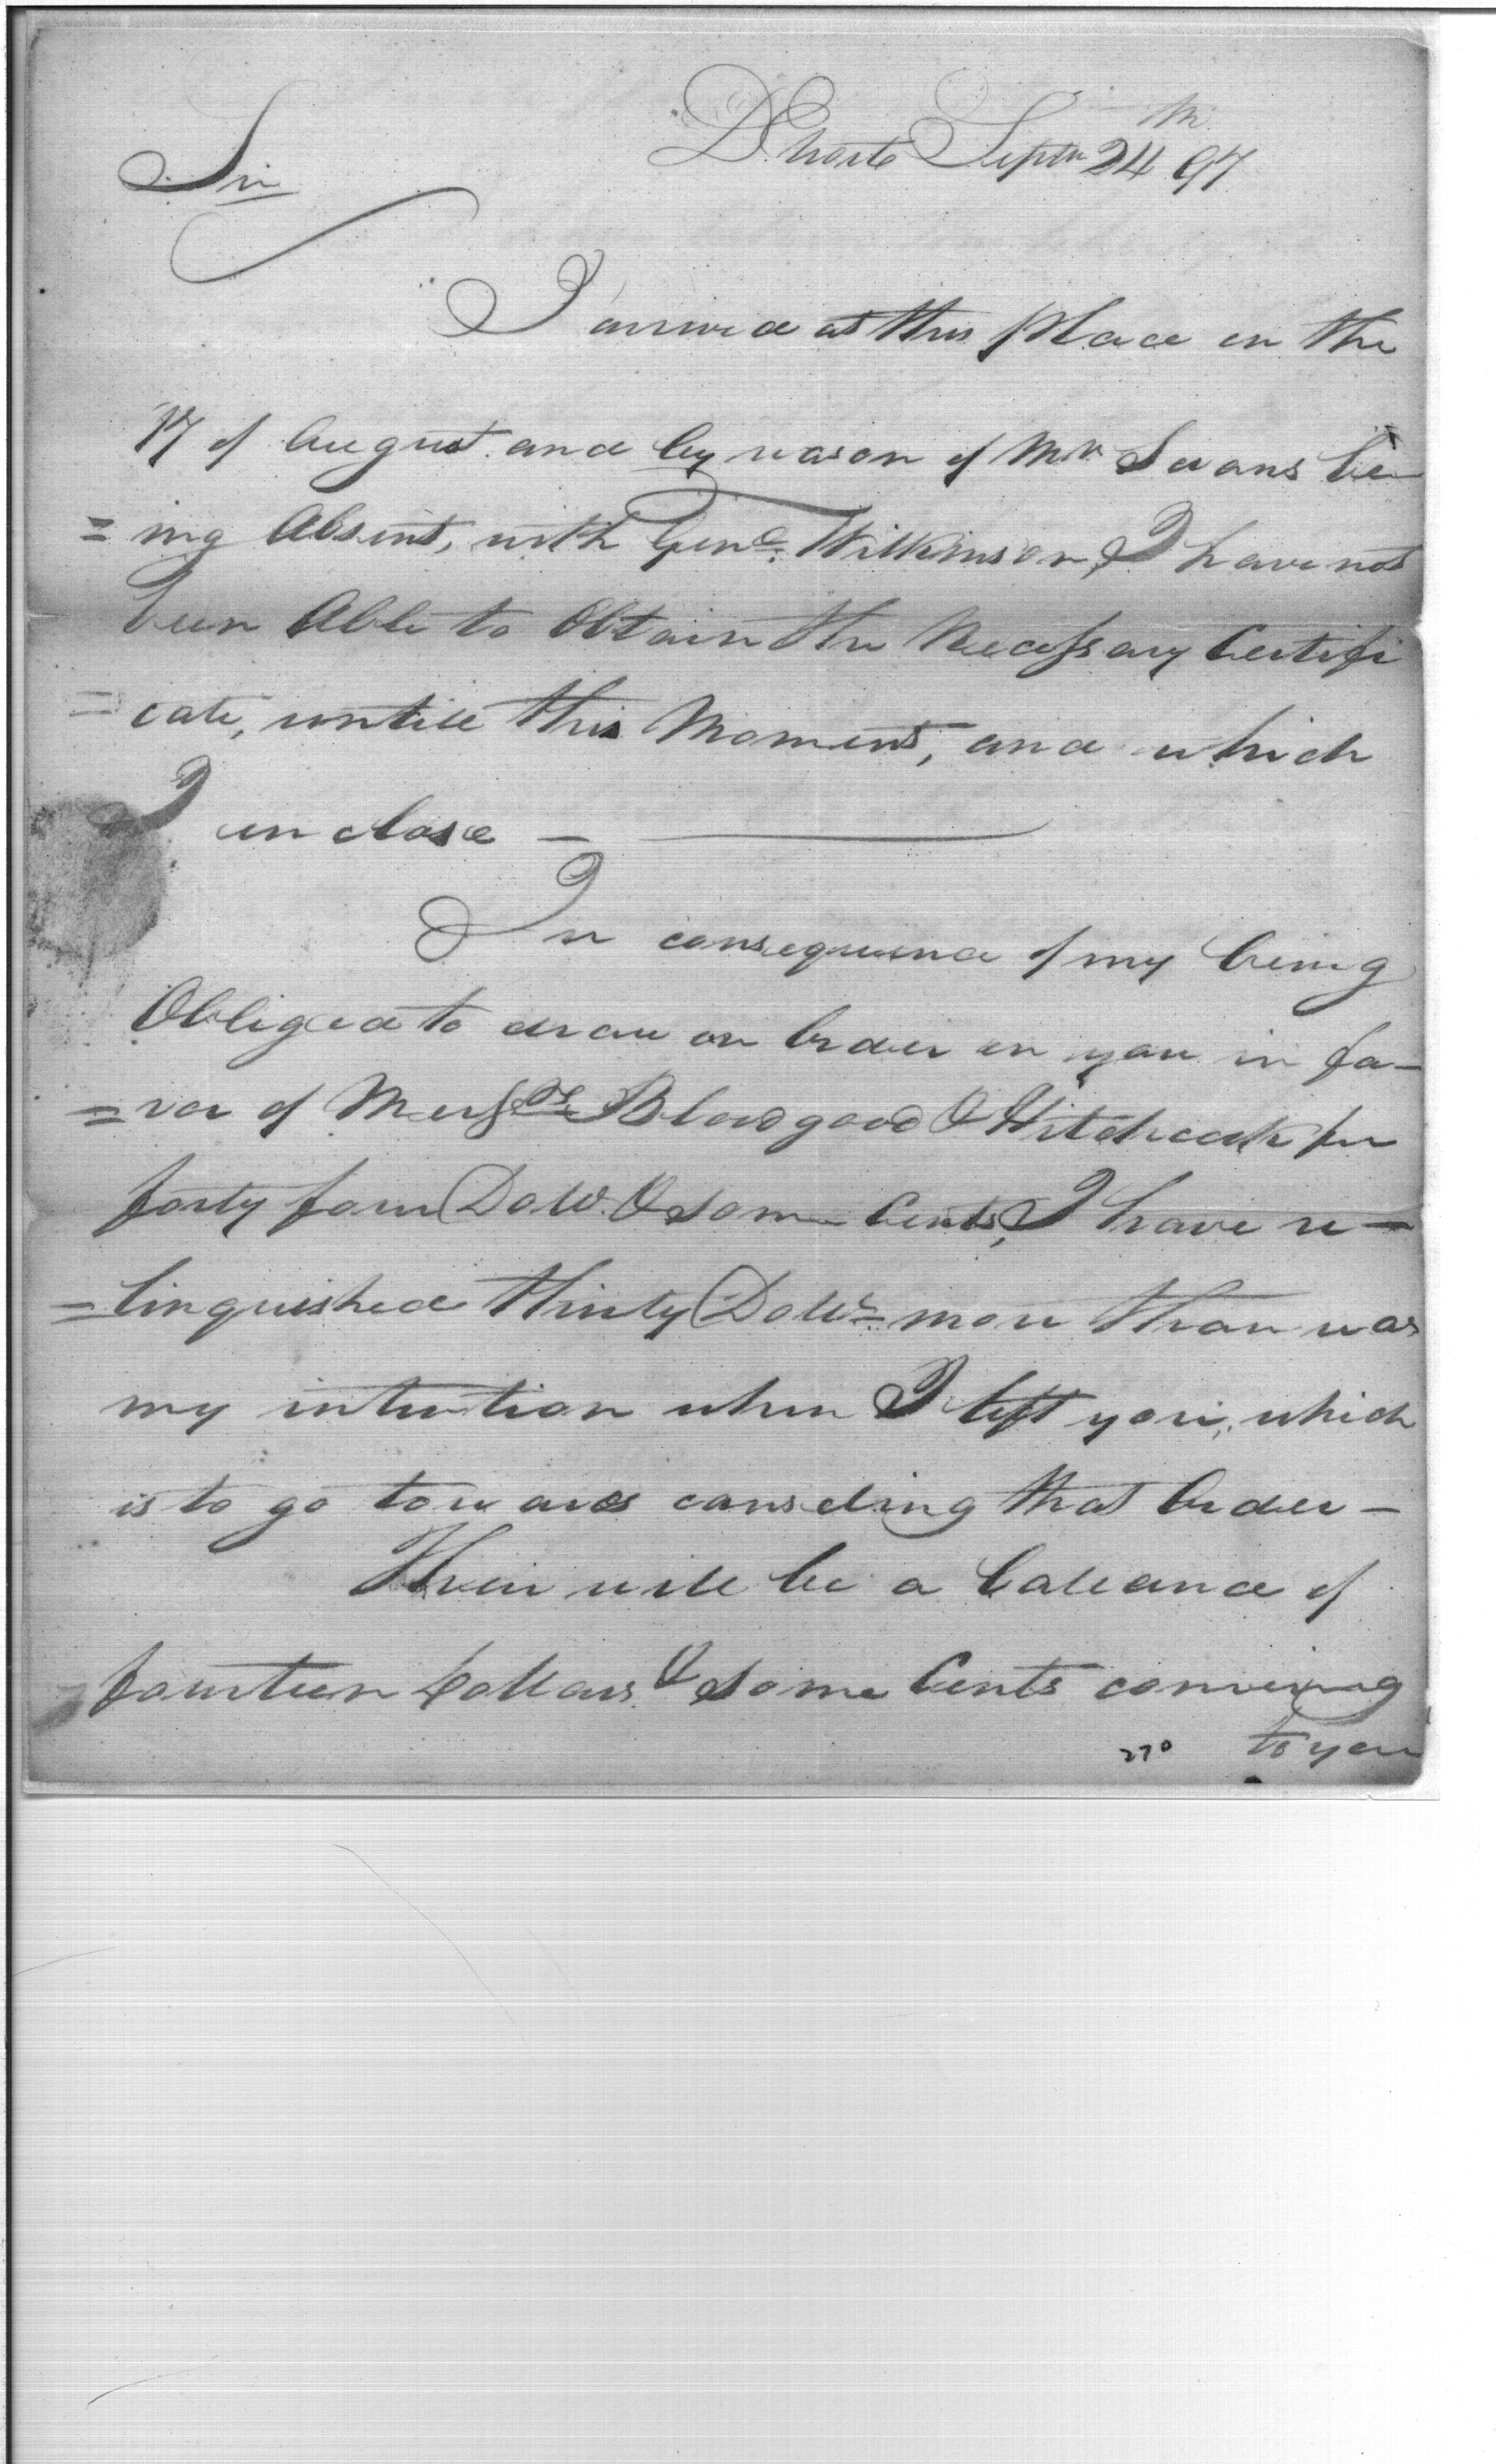 D'troit Septr 24th 97
Sir
I arrived at this Place on the
17 of August and by reason of Mr Swans be
=ing Absent, with Genl. Wilkinson, I have not
been Able to Obtain the Necessary Certifi
=cate, untill this Moment, and which
I inclose —
In consequence of my being
Obliged to draw an Order on you in fa-
=vor of Messrs Bloodgood & Hitchcock for
forty four Dolls. & some Cents, I have re-
=linquished thirty Dolls. more than was
my intention when I left you, which
is to go towards canseling that Order -
Their will be a ballance of
fourteen Dollars & some Cents comeing
270 to you